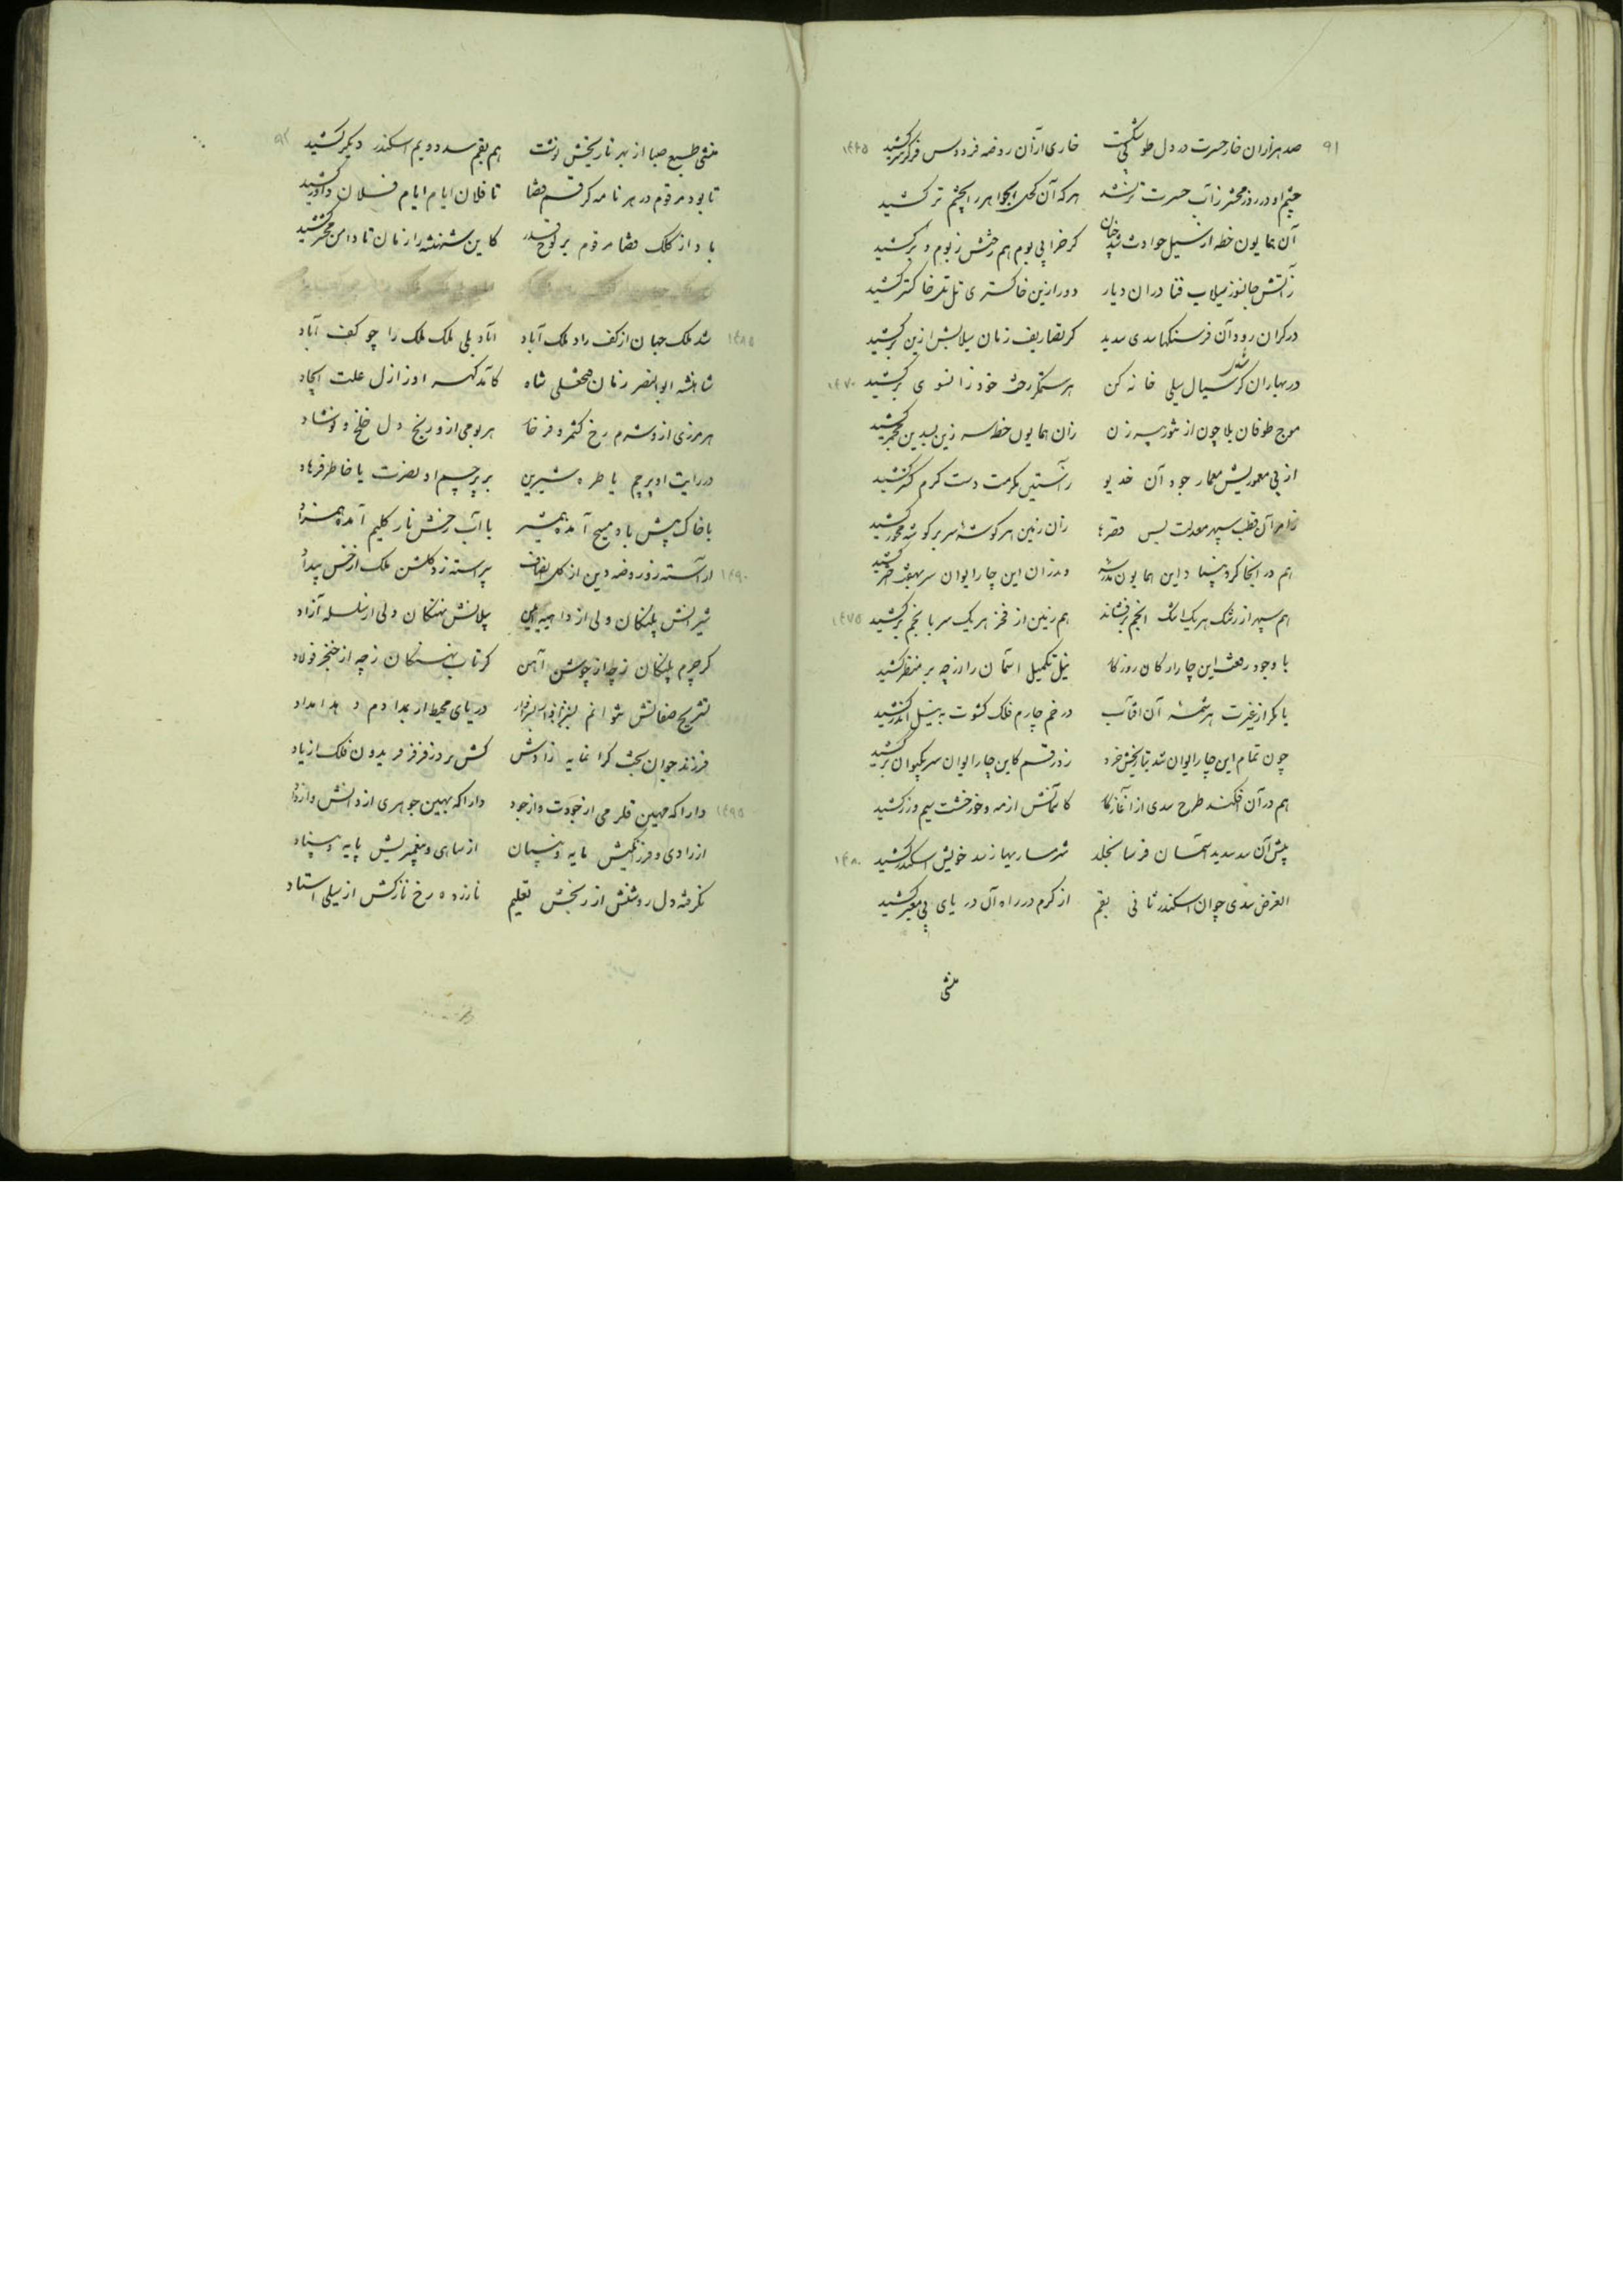 ۹۱ صد هزاران خار حسرت در دل طوبی شکست خاری از آن روضه فردوس فر گر سر کشید ۱۴۶۵
چشم او در روز محشر ز آب حسرت تر نشد هر که آن کحل الجواهر را بچشم تر کشید
آن همایون خطه از سیل حوادث شد چنان کز خرابی بوم هم رختش ز بوم و بر کشید
ز آتش جانسوز سیلاب فنا در آن دیار دور ازین خاکستری تل تل خاکستر کشید
در کران رود آن فرسنگها سدی سدید کز تصاریف زمان سیلابش از بن بر کشید
در بهاران گر شدی سیال سیلی خانه کن هر ستمگر رخت خود زانسوی بر کشید ۱۴۷۰
موج طوفان بلا چون از شور سر زن زان همایون خطه سر زین
از پی معموریش معمار جود آن خدیو ز آستین مکرمت دست کرم گستر کشید
آن قطب سپهر معدلت بس زان زمین هر گوشه سر بر گوشه محور کشید
هم در آنجا کرد بنیاد این همایون مدرسه وندران این چار ایوان سر بهفت کشید
هم سپهر از رشک هر یک اشک انجم برفشاند هم زمین از فخر هر یک سر با نجم بر کشید ۱۴۷۵
با وجود رفعت این چار ارکان روزگار نیل تکمیل آسمان را از چه بر منظر کشید
یا مگر از غیرت هر شمسه آن آفتاب در خم چارم فلک کسوت به نیل اندر کشید
چون تمام این چار ایوان شد بتاریخش خرد زد رقم کاین چار ایوان سر بکیوان بر کشید
هم در آن افکند طرح سدی از آغاز کار کآسمانش از مه و خور خشت سیم و زر کشید
پیش آن سد سدید آسمان فرسا نخلد شرمساریها ز سد خویش اسکندر کشید ۱۴۸۰
الغرض سدی چو آن اسکندر ثانی بقم از کرم در راه آن دریای بی معبر کشید
منشی
۹۲ منشی طبع صبا از بهر تاریخش نوشت هم بقم سد دویم اسکندر دیگر کشید
تا بود مرقوم در هر نامه کز رقم قضا تا فلان ایام ایام فلان داور کشید
باد از کلک قضا مرقوم بر لوح قدر کاین شهنشه را زمان تا دامن محشر کشید
۱۴۸۵ شد ملک جهان از کف راد ملک آباد آباد بلی ملک ملک را چو کف آباد
شاهنشه ابوالنصر زمان فتحعلی شاه کآمد گهر او ز ازل علت ایجاد
هر مرزی ازو شرم رخ کشمر و فرخار هر بومی ازو رنج دل خلخ و نوشاد
در رایت او پرچم یا طره شیرین بر پرچم او نصرت یا خاطر فرهاد
با خاک پیش باد مسیح آمده همسر با آب رخش نار کلیم آمده همزاد
۱۴۹۰ آراسته زو روضه دین از گل انصاف پیراسته زو گلشن ملک از خس بیداد
شیرانش پلنگان ولی از پیلانش نهنگان ولی از سلسله آزاد
گر چرم پلنگان ز چه از جوشن آهن گر ناب نهنگان ز چه از خنجر فولاد
تشریح صفاتش نتوانم دریای محیط ار بمدادم دهد امداد
فرزند جوان بخت گرانمایه نژادش کش برد ز فر فر فریدون فلک از یاد
۱۴۹۵ دارا که مهین قلزمی از جودت و از جود دارا که بهین جوهری از دانش و از داد
از رادی و فرزانگیش مایه از شاهی و پیغمبریش پایه
نگرفته دل روشنش از رنجش تعلیم نازرده رخ نازکش از سیلی استاد